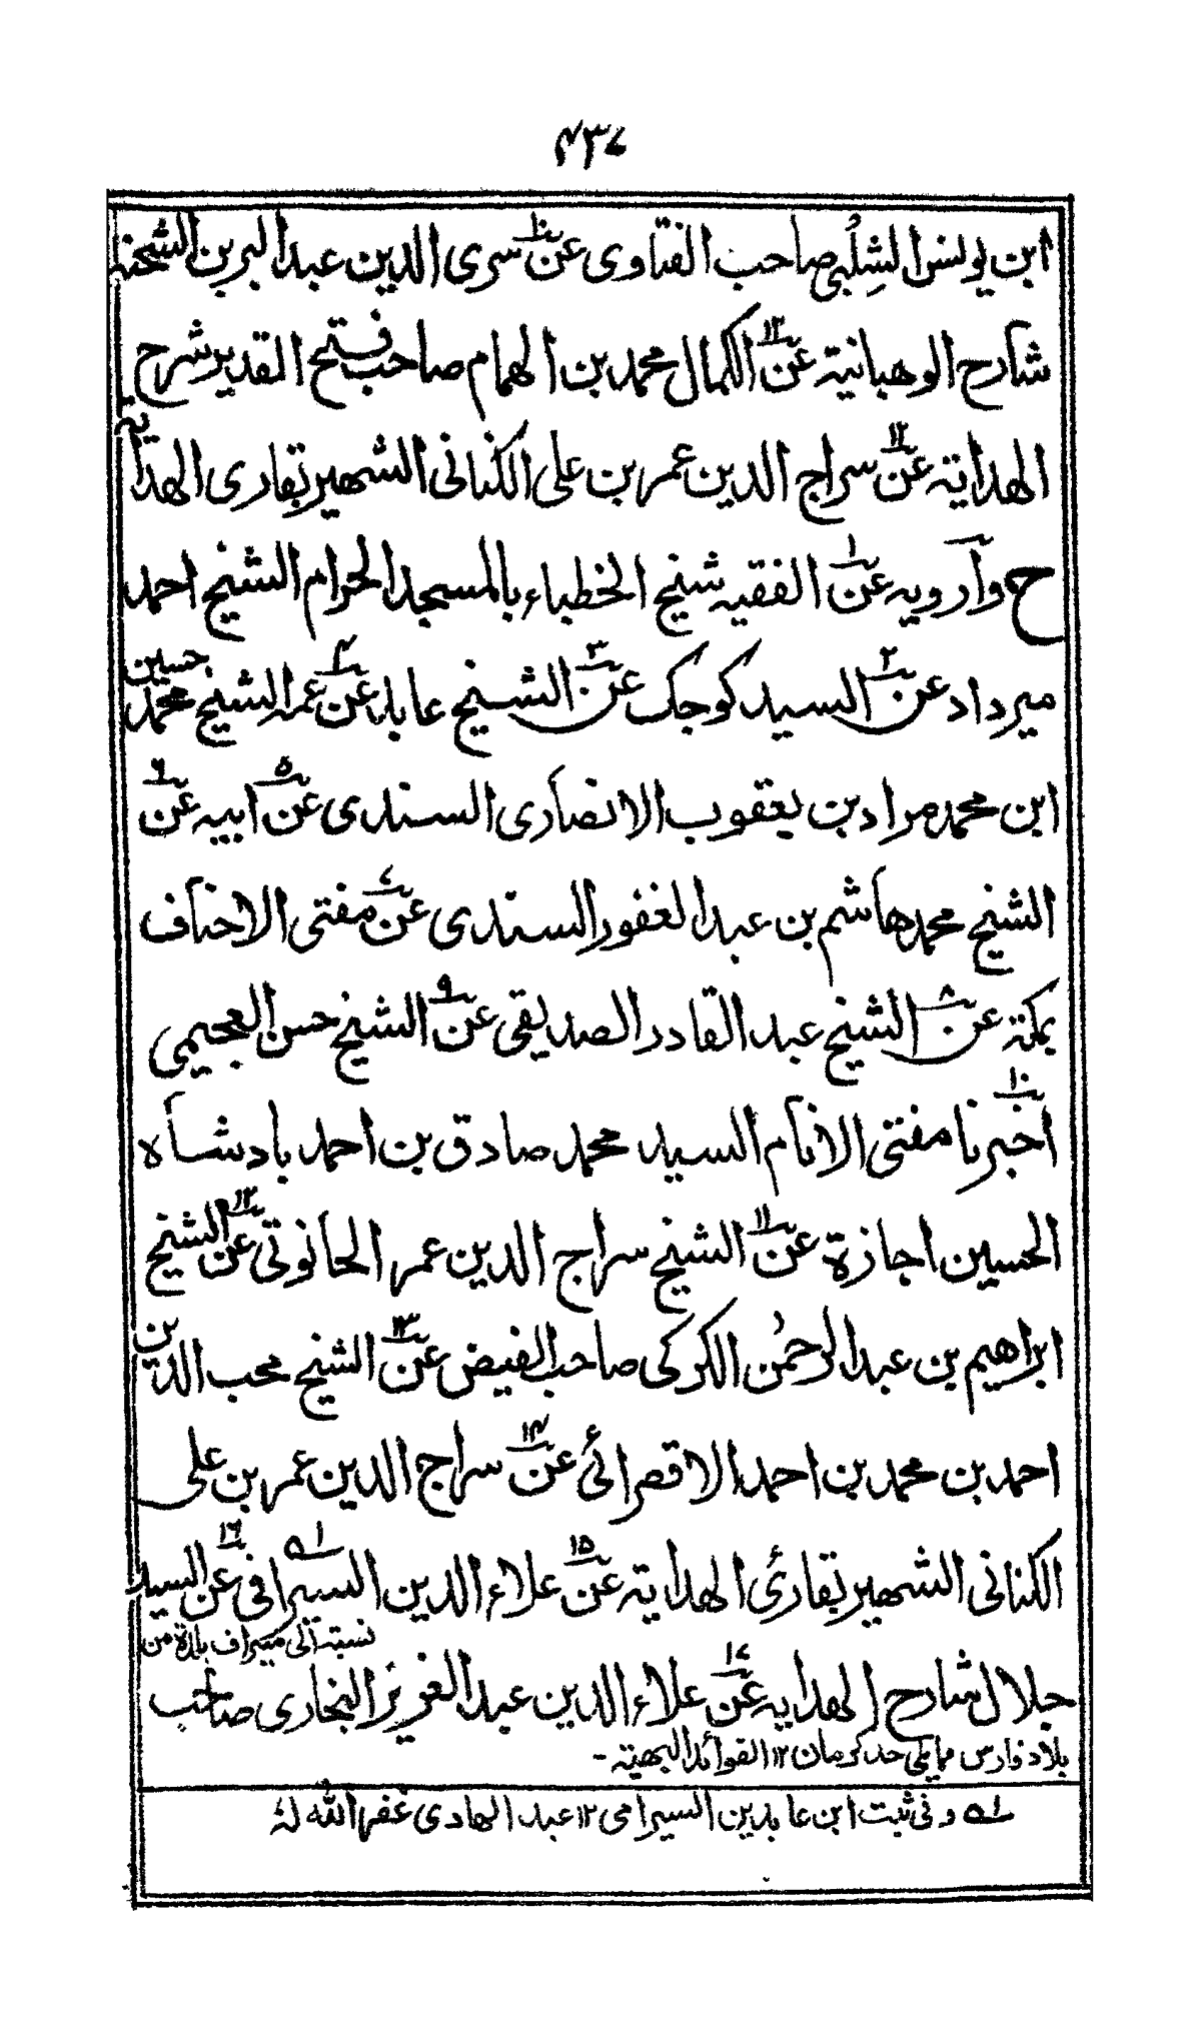 ۴۳۷
ابن یونس الشِلْبی صاحب الفتاوی عن۱۰ سری الدین عبد البر بن الشحنۃ
شارح الوھبانیۃ عن۱۳ الکمال محمد بن الھمام صاحب فتح القدیر شرح
الھدایۃ عن۱۲ سراج الدین عمر بن علی الکنانی الشھیر بقاری الھدایۃ
ح وآرویہ عن۱ الفقیہ شیخ الخطباء بالمسجد الحرام الشیخ احمد
میرداد عن۲ السید کوجک عن۳ الشیخ عابد عن۴ عمہ الشیخ محمد حسین
ابن محمد مراد بن یعقوب الانصاری السندی عن۵ ابیہ عن۶
الشیخ محمد ھاشم بن عبد الغفور السندی عن۷ مفتی الاحناف
بمکۃ عن۸ الشیخ عبد القادر الصدیقی عن۹ الشیخ حسن العجیمی
۱۰ اخبرنا مفتی الانام السید محمد صادق بن احمد بادشاہ
الحسین اجازۃ عن۱۱ الشیخ سراج الدین عمر الحانوتی عن۱۲ الشیخ
ابراھیم بن عبد الرحمٰن الکرکی صاحب الفیض عن۱۳ الشیخ محب الدین
احمد بن محمد بن احمد الاقصرائی عن۱۴ سراج الدین عمر بن علی
الکنانی الشھیر بقارئ الھدایۃ عن۱۵ علاء الدین السیرافی۱ہ عن۱۶ السید
نسبۃ الی سیراف بلدۃ من
جلال شارح الھدایہ عن۱۷ علاء الدین عبد العزیز البخاری صاحب
بلاد فارس مما یلی حد کرمان ۱۲ الفوائد البھیۃ -
۱ہ و فی ثبت ابن عابدین السیرامی ۱۲ عبد الھادی غفر اللہ لہٗ